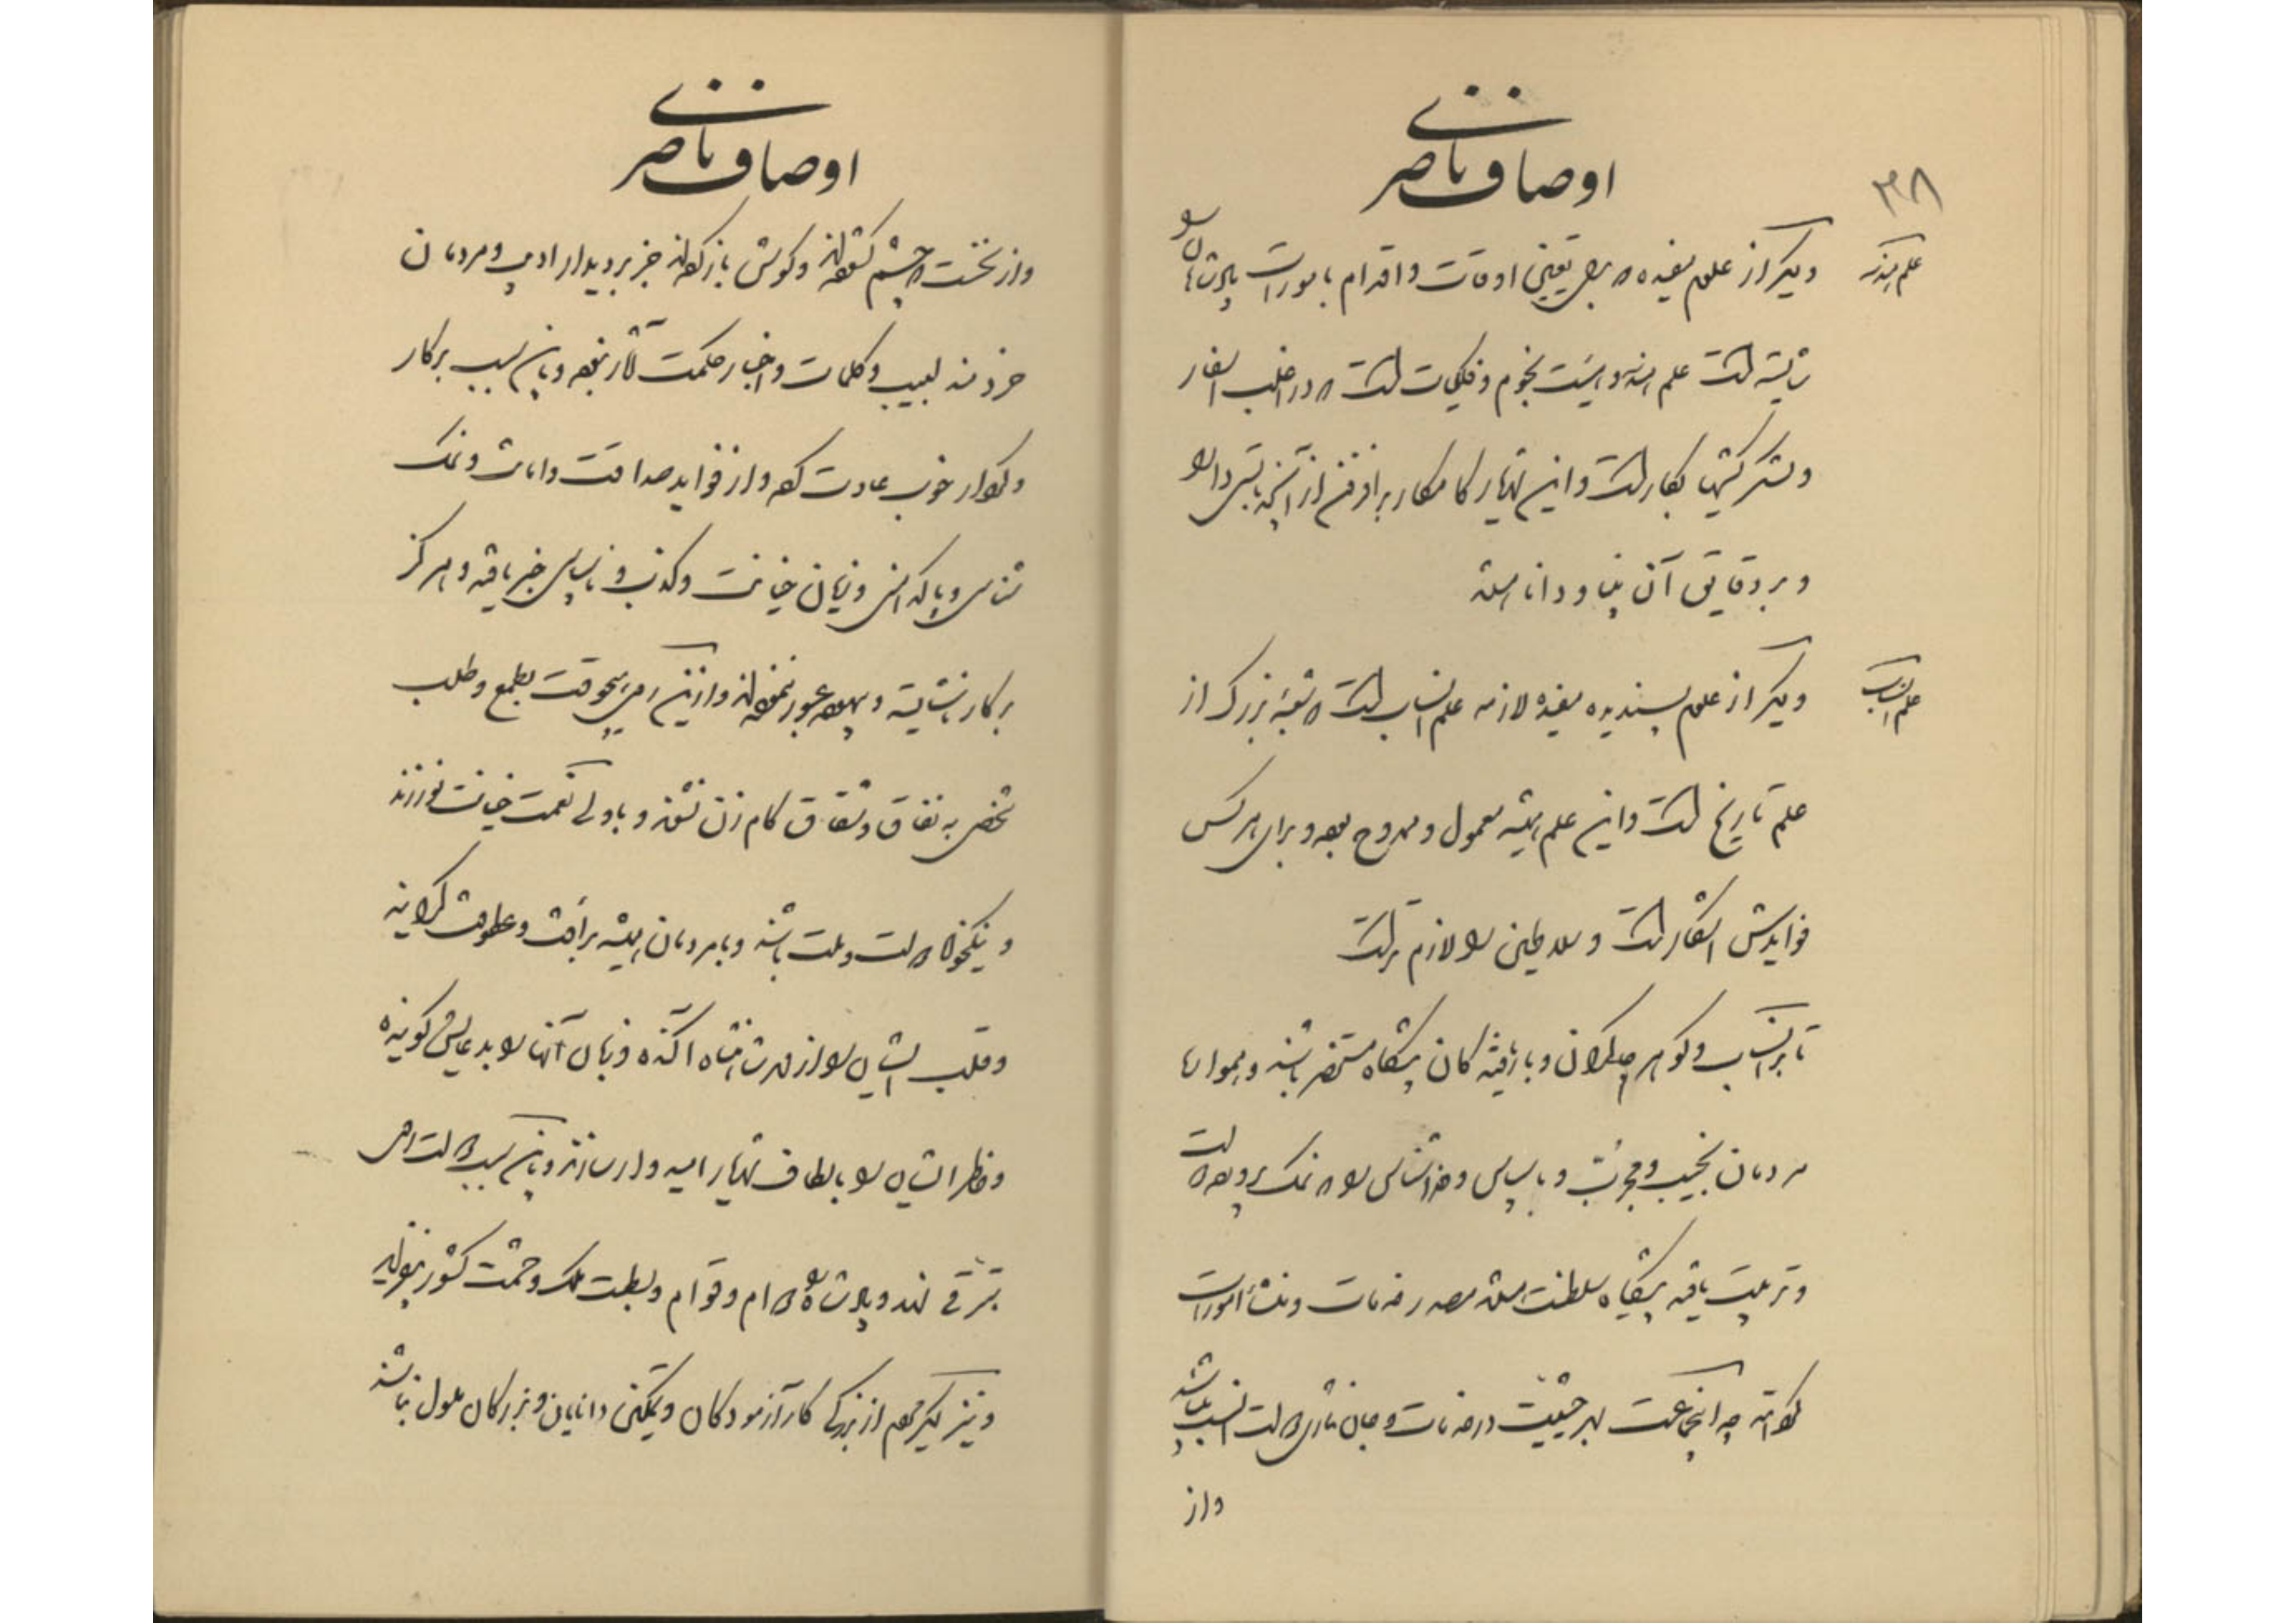 اوصاف ناصری
۳۸
علم هندسه
دیگر از علوم مفیده که برای تعیین اوقات و اقدام بامورات پادشاهان را
شایسته است علم هندسه و هیئت نجوم و فلکیات است که در اغلب اسفار
و لشکرکشیها بکار است و این شهریار کامکار بر این فن از آنچه بایستی دانا
و بر دقایق آن بینا و دانا هستند
علم انساب
دیگر از علوم پسندیده مفیده لازمه علم انساب است که شعبه بزرگ از
علم تاریخ است و این علم همیشه معمول و ممدوح بوده و برای هر کس
فوایدش آشکار است و سلاطین را لازم تر است
تا بر انساب و گوهر چاکران و باریافته‌گان پیشگاه مستحضر باشند و هموار
مردمان نجیب و مجرب و با سپاس و خداشناس را که نمک پرورده دولت
و تربیت یافته پیشگاه سلطنت هستند مصدر خدمات و منشأ امورات
چه اینجماعت بهر حیثیت در خدمات و جان نثاری دولت انسب میباشند
و از
اوصاف ناصری
و از نخست که چشم گشوده‌اند و گوش باز کرده‌اند جز بر دیدار ادیب و مردمان
خردمند لبیب و کلمات و اخبار حکمت آثار نبوده و باین سبب بر کار
و کردار خوب عادت کرده و از فواید صداقت و امانت و نمک
شناسی و پاکدامنی و زیان خیانت و کذب و ناسپاسی خبر یافته و هرگز
بر کار ناشایسته و بیهوده عبور ننموده‌اند و ازین رهگذر هیچوقت بطمع و طلب
شخصی به نفاق و شقاق کام زن نشوند و با ولی نعمت خیانت نورزند
و نیکخواه دولت و ملت باشند و با مردمان همیشه برأفت و عطوفت گرایند
و قلب ایشان را از مهر شاهنشاه آکنده و زبان آنها را بدعایش گوینده
و خاطر ایشان را بالطاف شهریار امیدوار سازند و باین سبب دولت را
بترقی نهند و پادشاه را دوام و قوام و بسطت ملک و حشمت کشور بیفزاید
و نیز دیگر مردم از بزرگی کارآزمودگان و تمکین دانایان و بزرگان ملول نباشند